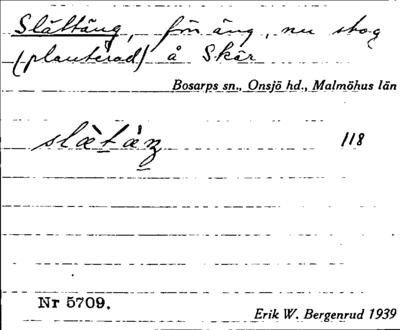 Slättäng, förr äng, nu skog
(planterad) å Skär
Bosarps sn., Onsjö hd., Malmöhus län
118
Nr 5709.
Erik W. Bergenrud 1939